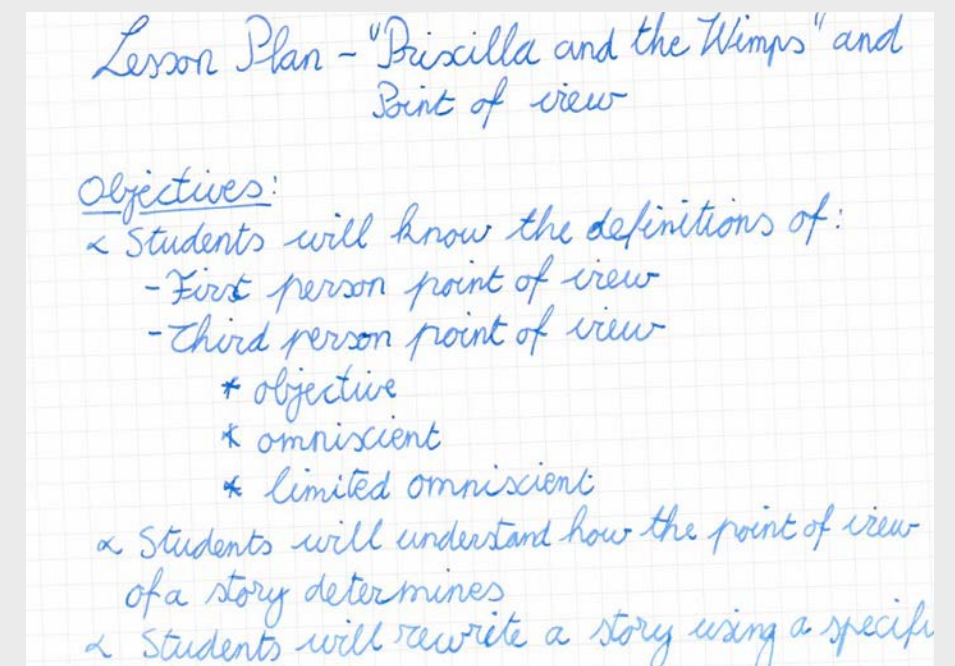 Lesson Plan - "Priscilla and the Wimps" and
Point of view
Objectives:
∝ Students will know the definitions of:
- First person point of view
- Third person point of view
* objective
* omniscient
* limited omniscient
∝ Students will understand how the point of view
of a story determines
∝ Students will rewrite a story using a specifi